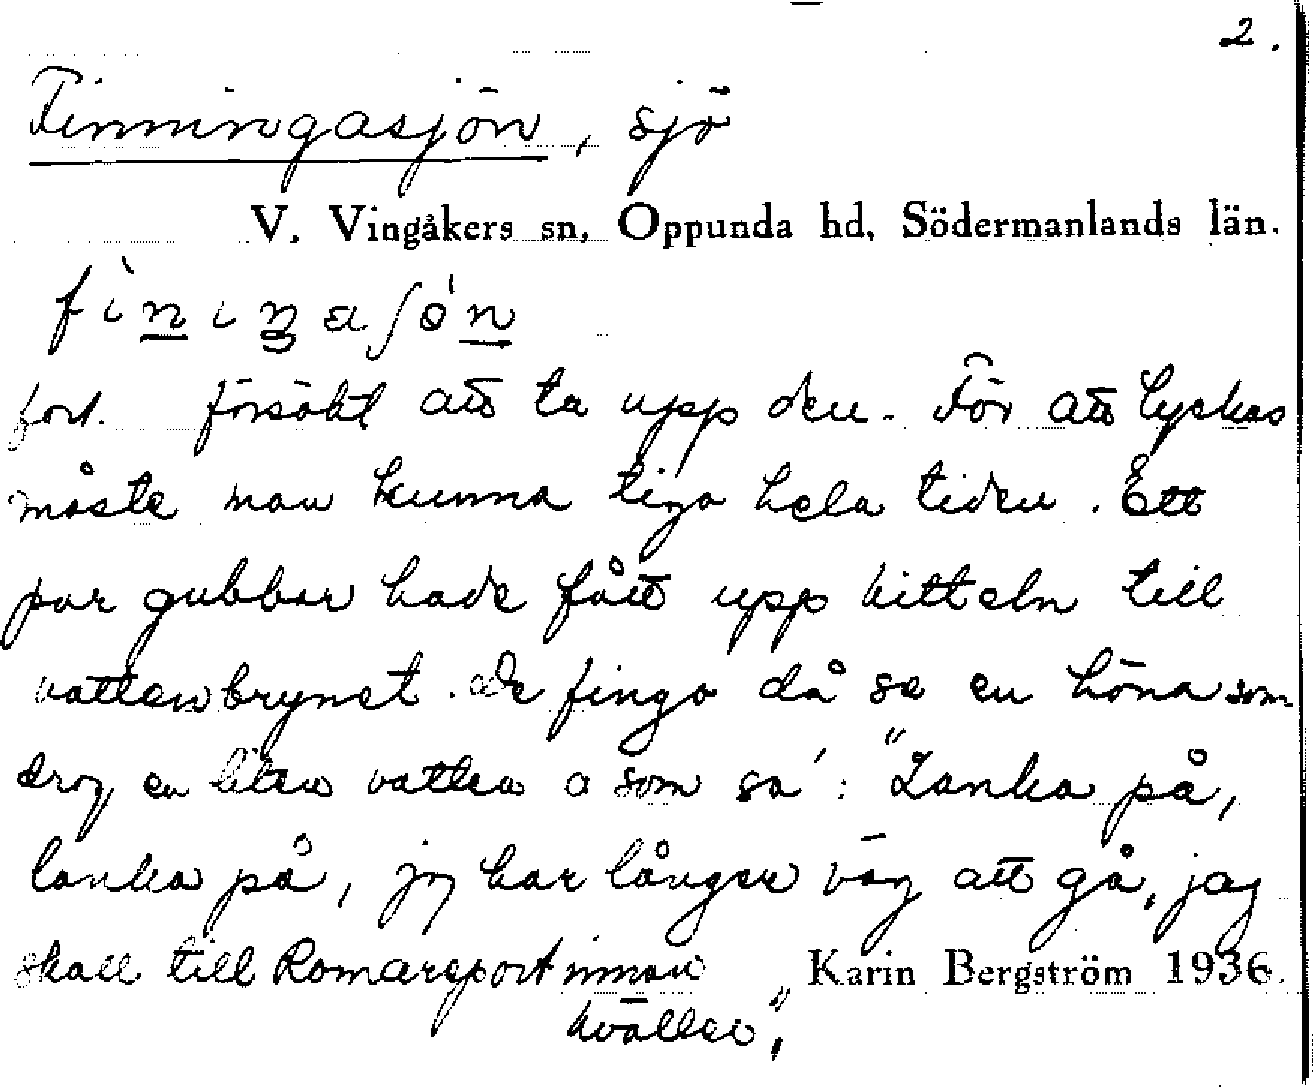 2.
Finningasjön, sjö
V. Vingåkers sn, Oppunda hd, Södermanlands län.
fìniŋaʃǿn
fort. försökt att ta upp den. För att lyckas
måste man kunna tiga hela tiden. Ett
par gubbar hade fått upp kitteln till
vattenbrynet. De fingo då se en höna som
drog en liten vatten o som sa': "Lanka på,
lanka på, jag har långer väg att gå, jag
skall till Romareport innan
kvällen".
Karin Bergström 1936.